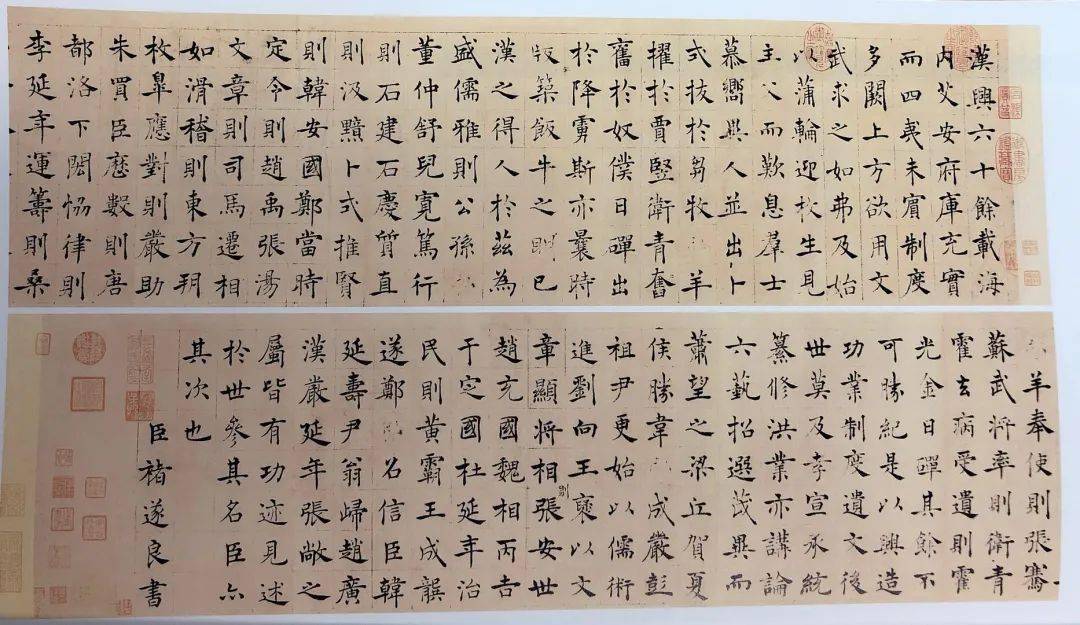 漢興六十餘載海
內艾安府庫充實
而四夷未賓制度
多闕上方欲用文
武求之如弗及始
以蒲輪迎枚生見
主父而歎息羣士
慕嚮異人並出卜
式拔於芻牧羊
擢於賈豎衛青奮
舊於奴僕日磾出
於降虜斯亦曩時
版築飯牛之明已
漢之得人於茲為
盛儒雅則公孫
董仲舒兒寬篤行
則石建石慶質直
則汲黯卜式推賢
則韓安國鄭當時
定令則趙禹張湯
文章則司馬遷相
如滑稽則東方朔
枚皐應對則嚴助
朱買臣歷數則唐
都洛下閎恊律則
李延年運籌則桑
羊奉使則張騫
蘇武將率則衛青
霍去病受遺則霍
光金日磾其餘不
可勝紀是以興造
功業制度遺文後
世莫及孝宣承統
纂修洪業亦講論
六藝招選茂異而
蕭望之梁丘賀夏
侯勝韋成嚴彭
祖尹更始以儒術
進劉向王褒以文
章顯將相則張安世
趙充國魏相丙吉
于定國杜延年治
民則黃霸王成龔
遂鄭名信臣韓
延壽尹翁歸趙廣
漢嚴延年張敞之
屬皆有功迹見述
於世參其名臣亦
其次也
臣褚遂良書